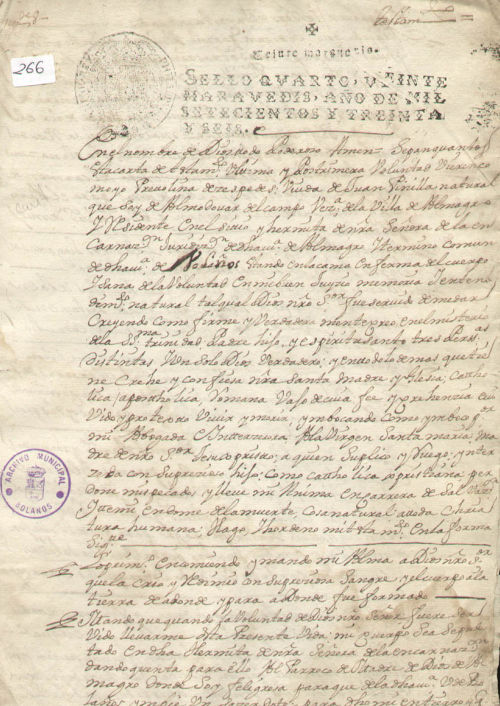 266
Veinte maravedis.
SELLO QVARTO, VEINTE
MARAVEDIS, AÑO DE MIL
SETECIENTOS Y TREINTA
Y SEIS.
En el nombre de Dios todo Poderoso Amen Sepan quantos
esta carta de testam.to Ultima y Postrimera Voluntad Vieren co
mo yo de cespedes Viuda de Juan Pinilla natural
que Soy de Almodovar del campo Vez.a de la Villa de Almagro
Y Residente en el sitio y hermita de nra Señora de la en
Carnaz.on Juridiz.on de dha V.a de Almagro Y termino comun
de dha V.a de Bolaños estando en la cama enferma del cuerpo
Y Sana de la Voluntad en mi buen Juyzio memoria Y entendi
dim.to natural tal qual Dios nro S.or fue servido de me dar
Creyendo como firme y Verdadera mente creo en el misterio
de la SS.ma trinidad Padre hijo, y espiritu santo tres Personas
Distintas Y Un solo Dios Verdadero; y en todo lo demas que tie
ne Crehe y confiesa nra Santa Madre Yglesia, Catho
lica, Apostholica, Romana Vajo de cuia fee y
Vivido y protexto Vivir y morir, ymbocando como ymboco p.r
mi Abogada E Intercesora A la Virgen Santa maria, ma
dre de nro S.or Jesucristo; a quien Suplico y Ruego, ynter
zeda con Su precioso hijo, como catholica cristiana, per
done mis pecados y lleve mi Anima en carrera de Salvaz.on
Y temiendome de la muerte Cosa natural a toda Criatu
tura humana: Hago, Y hordeno mi testam.to en la forma
Sig.te
Lo prim.o Encomiendo y mando mi Alma a Dios nro S.or
que la Crio y Redimio con Su preciosa Sangre, y el cuerpo a la
tierra de adonde y para a Donde fue formado
Y Mando que quando la Voluntad de Dios nro Señor fuere servi
Vido llevarme de esta Presente Vida: mi cuerpo Sea Sepul
tado en dha Hermita de nra Señora de la encarnaz.on
dando quenta para ello Al Parroco de Madre de Dios de Al
magro donde Soy feligresa para que la dha V.a de Bo
laños
ARCHIVO MUNICIPAL
BOLAÑOS